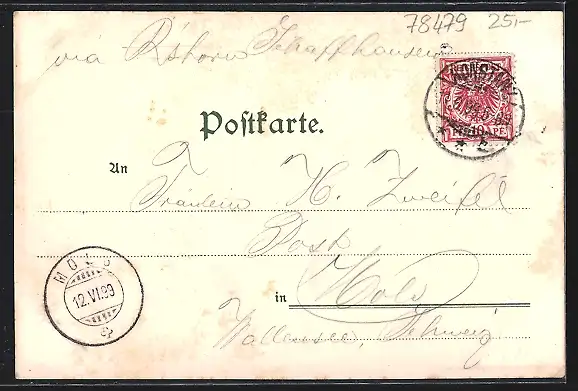 78479 25.-
via Schaffhausen
KONSTANZ
10 PF.
Postkarte.
An
Fräulein H. Zweifel
Post
in Mols
Wallensee, Schweiz
MOLS
12.VI.99